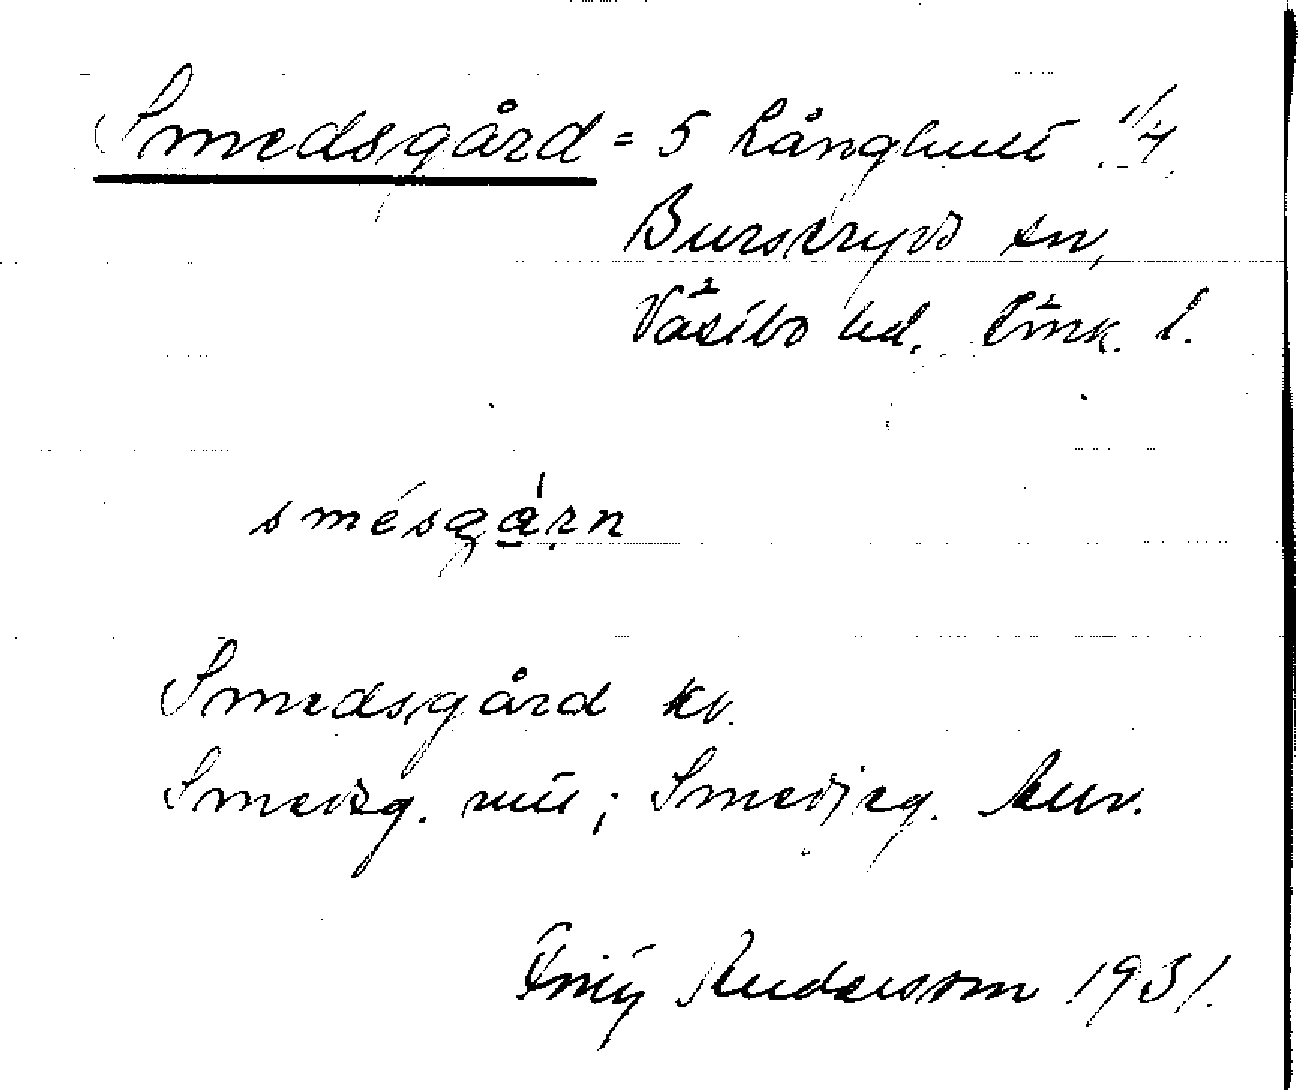 Smedsgård = 5 Långhult 1/4
Burseryds sn,
Västbo hd. Jönk. l.
smésgárn
Smedsgård kv.
Smedsg. ; Smedjeg.
Andersson 1931.